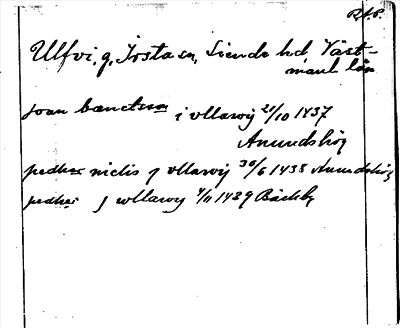 RAP.
Ulfvi, g, Irsta sn, Siende hd, Väst-
manl. län
joan bænctsson i vllawij 21/10 1437
Anundshög
pedher niclis j vllawij 30/6 1438 Anundshög
pedher j wllawij 4/11 1439 Bäckby